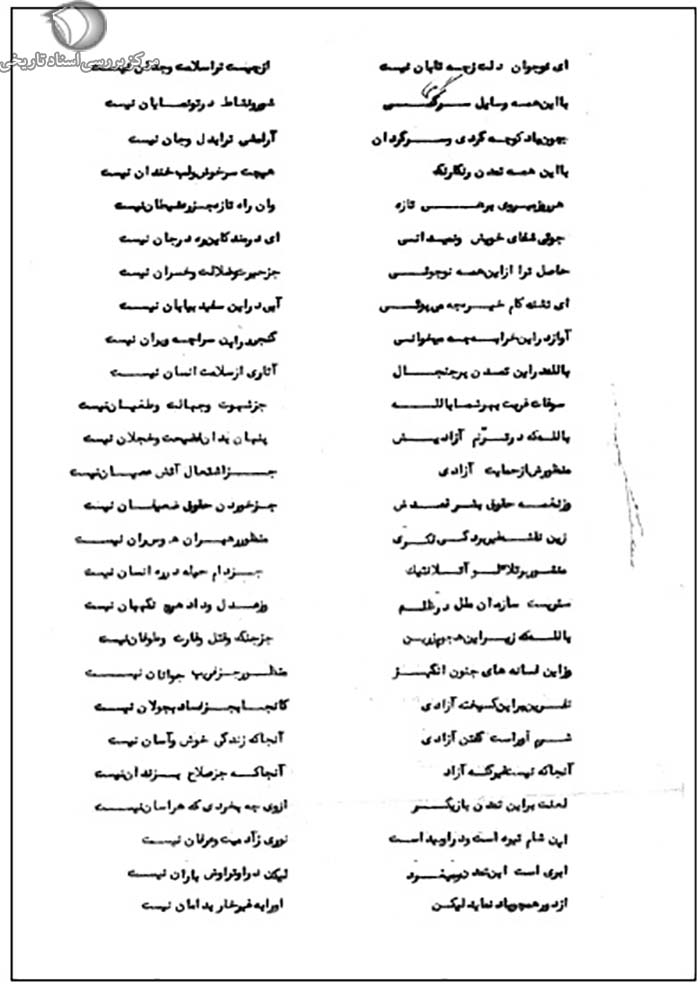 مرکز بررسی اسناد تاریخی
ای نوجوان دلت زچه تابان نیست از چیست ترا سلامت وجدان نیست
با این همه وسایل سرگرمی شور و نشاط در تو نمایان نیست
چون باد کوچه گردی و سرگردان آرامشی ترا بدل و جان نیست
با این همه تمدن رنگارنگ هیچت سرخوش و لب خندان نیست
هر روز میروی برهی تازه وان راه تازه جز ره شیطان نیست
جوئی شفای خویش و نمیدانی ای دردمند کاین ره درمان نیست
حاصل ترا از این همه نوجوئی جز حیرت و ضلالت و خسران نیست
ای تشنه کام خیره چه میپوئی آبی در این سفید بیابان نیست
آواز در این خرابه چه میخوانی گنجی در این سراچه ویران نیست
بالله در این تمدن پر جنجال آثاری از سلامت انسان نیست
سوقات غرب بهر شما بالله جز شهوت و جهالت و طغیان نیست
بالله که در ترنم آزادیش پنهان بدان فضیحت و خجلان نیست
منظورش از حمایت آزادی جز اشتعال آتش عصیان نیست
وز نغمه حقوق بشر قصدش جز خوردن حقوق ضعیفان نیست
زین نقشه غیر بردگی فکری منظور رهبران هوس ران نیست
منشور پر تلاءلو آتلانتیک جز دام حیله در ره انسان نیست
سازمان ملل در وز عدل و داد هیچ نگهبان نیست
بالله که زیر این جز جنگ و قتل و غارت و طوفان نیست
وز این فسانه های جنون انگیز منظور جز فریب جوانان نیست
نفرین بر این گسیخته آزادی کانجا بجز فساد بجولان نیست
شرم آور است گفتن آزادی آنجا که زندگی خوش و آسان نیست
آنجا که نیست غیر گنه آزاد آنجا که جز صلاح بزندان نیست
لعنت بر این تمدن بازیگر ازوی چه بخردی که هراسان نیست
این شام تیره است و در او بید است نوری ز آدمیت و عرفان نیست
ابری است این تمدن و میغرد لیکن در او تراوش باران نیست
از دور همچو باد نماید لیکن او را به غیر خار بدامان نیست